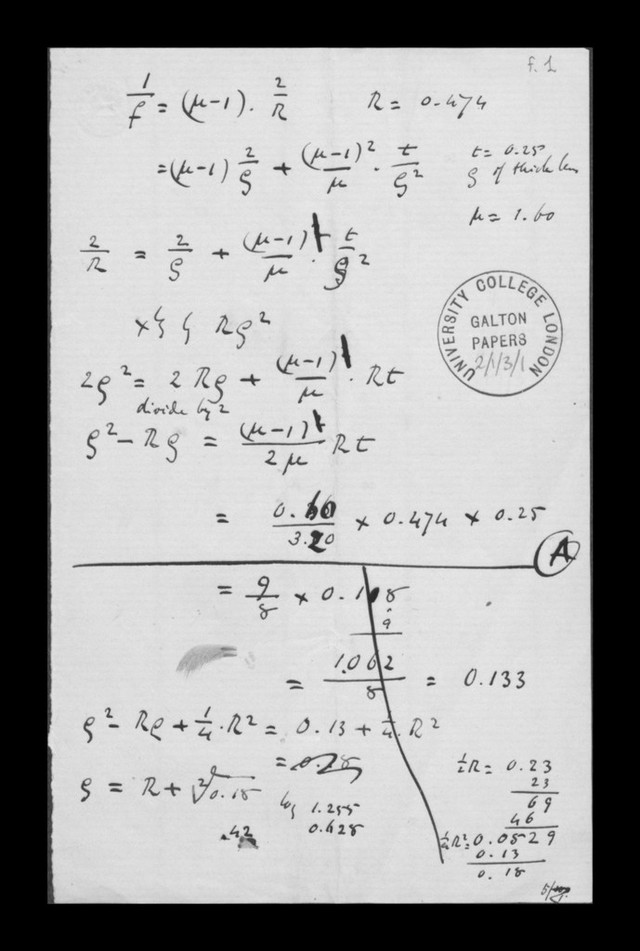 f. 1
1/f = (μ-1) . 2/R R = 0.474
= (μ-1) 2/ρ + (μ-1)²/μ . t/ρ² t = 0.25
ρ of thick lens
μ = 1.60
2/R = 2/ρ + (μ-1)/μ . t/ρ²
UNIVERSITY COLLEGE LONDON
GALTON
PAPERS
2/1/3/1
Rρ²
2ρ² = 2Rρ + (μ-1)/μ . Rt
divide by 2
ρ² - Rρ = (μ-1)/2μ Rt
= 0.60/3.20 × 0.474 × 0.25
A
= 9/8 × 0.118
9
= 1.062/8 = 0.133
ρ² - Rρ + 1/4 . R² = 0.13 + 1/4 . R²
= 0.18
ρ = R + ²√0.18
log 1.255
0.628
.42
½R = 0.23
23
69
46
¼R² = 0.0529
0.13
0.18